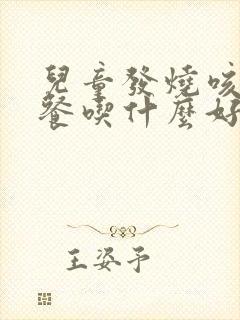 兒童發燒咳
餐喫什麼好
王姿予